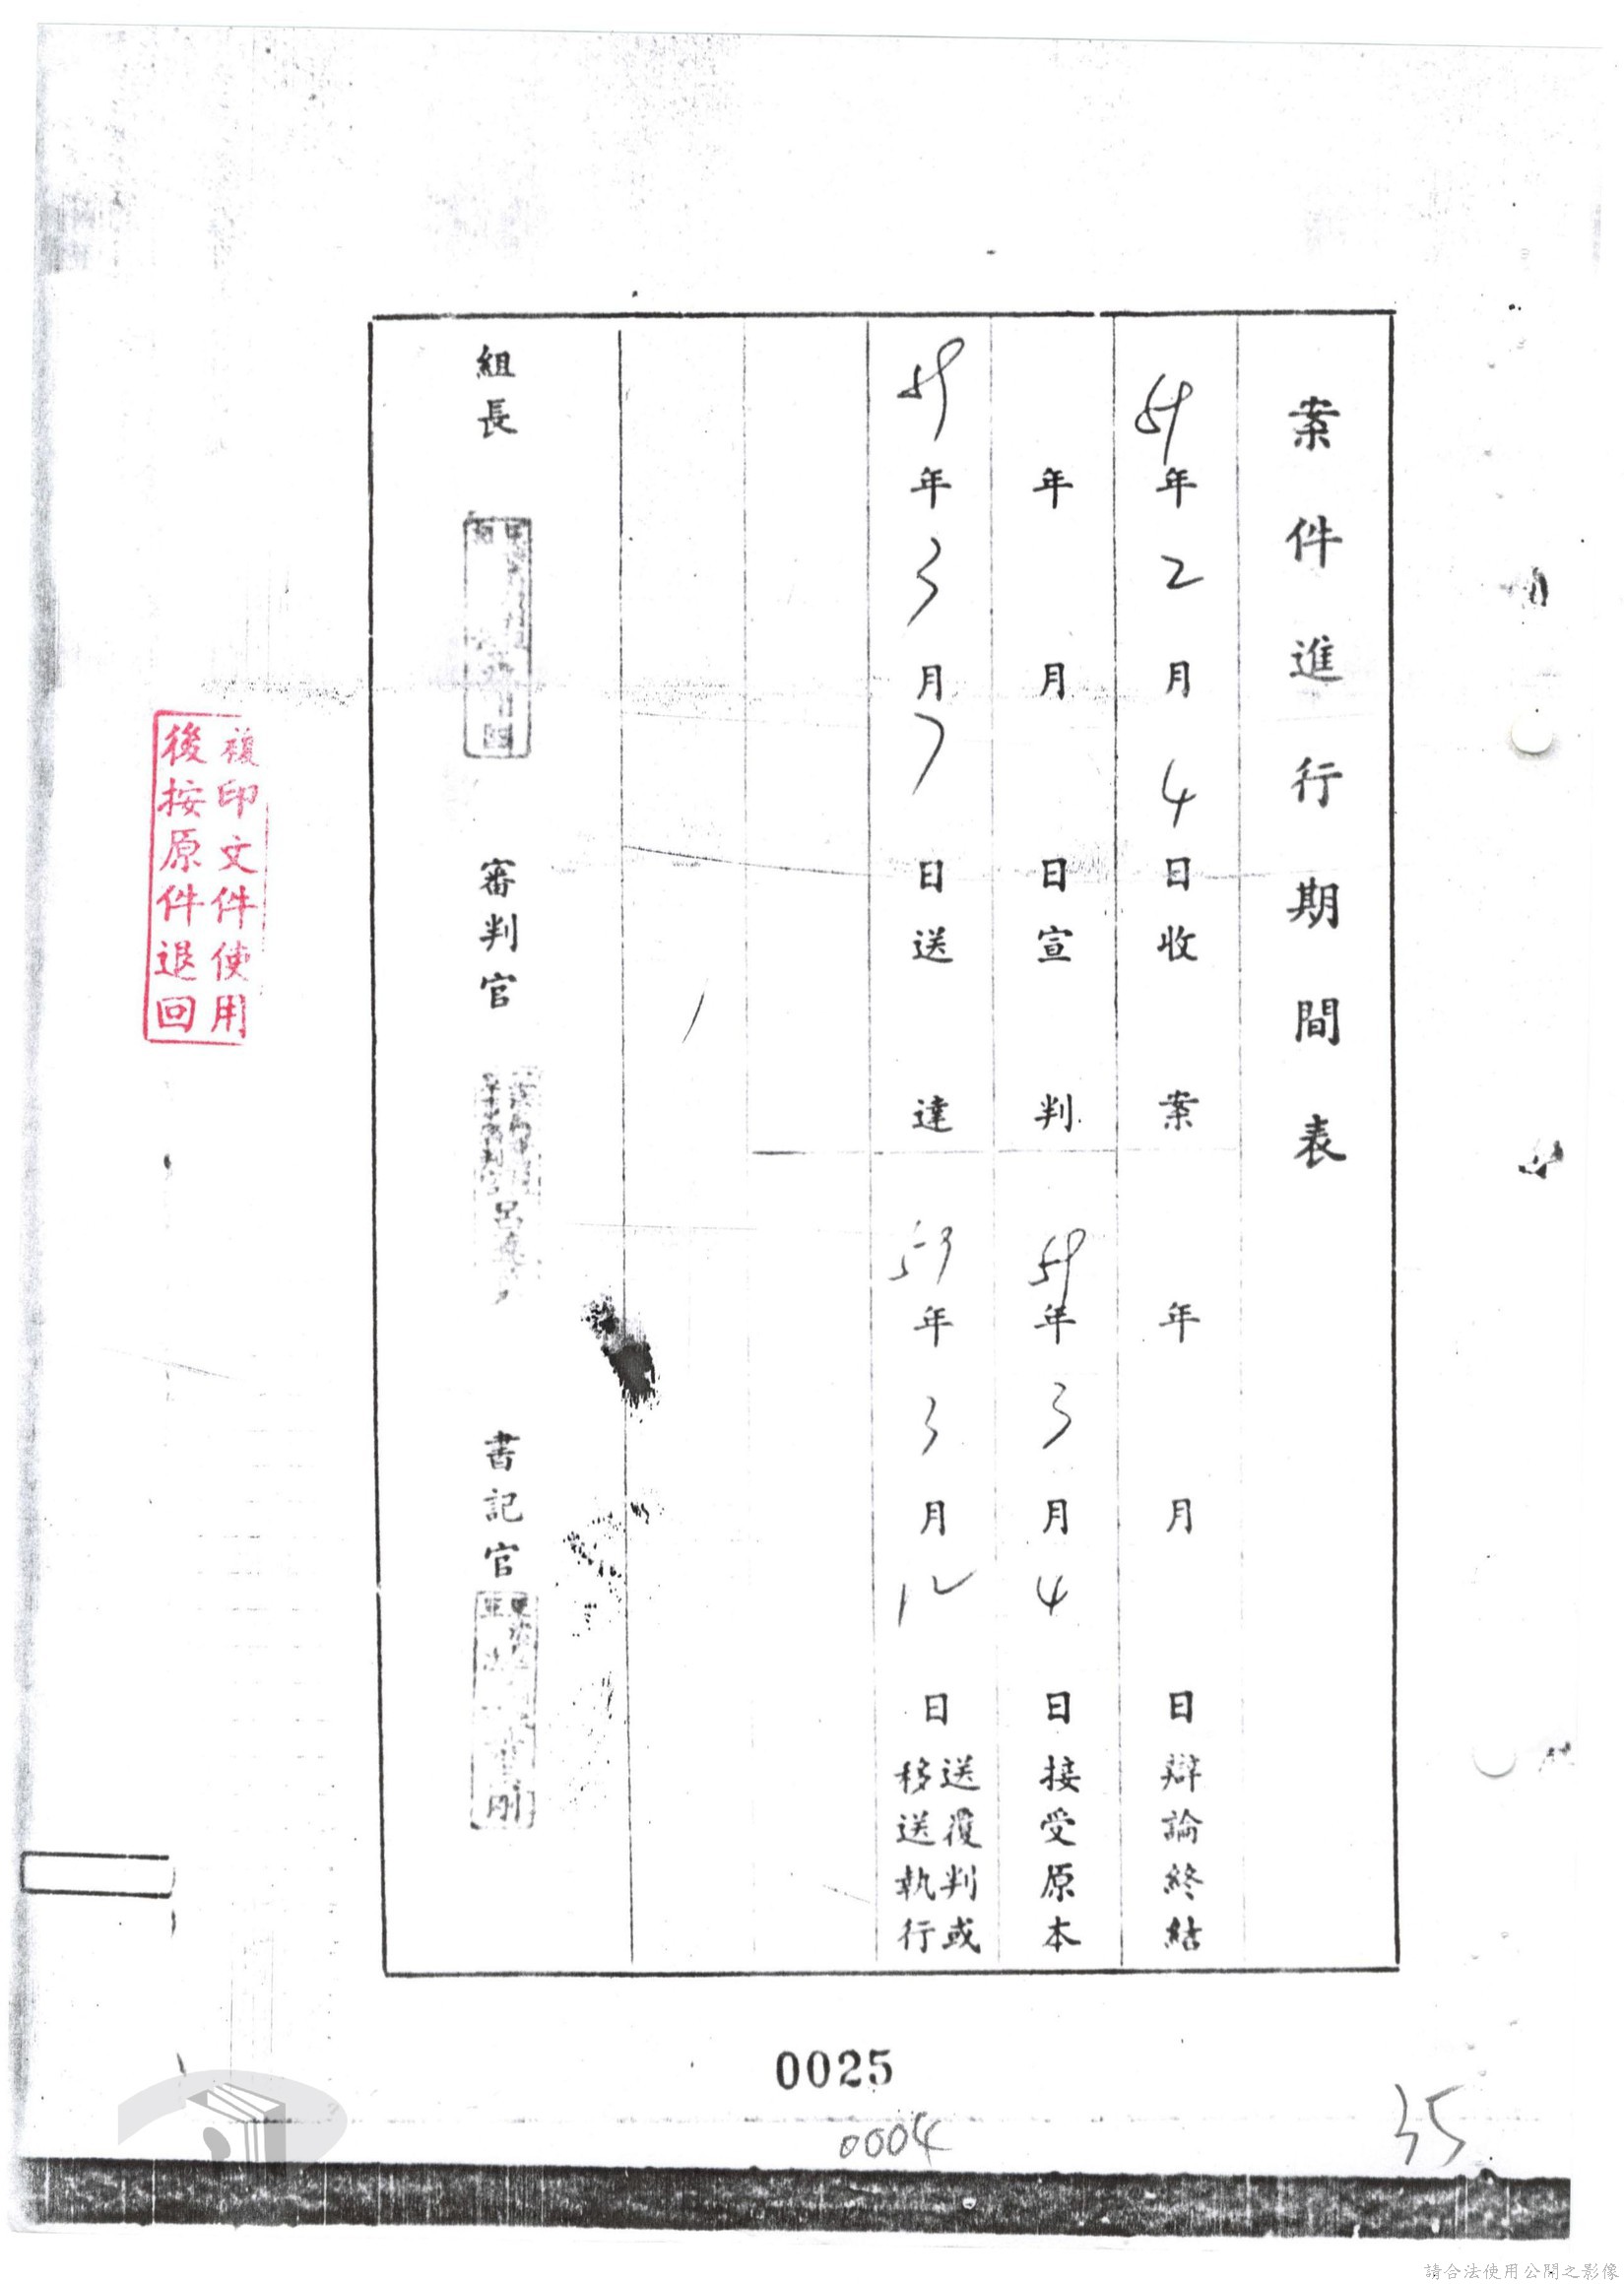 案件進行期間表
59年2月4日收案
年月日辯論終結
年月日宣判
59年3月4日接受原本
59年3月7日送達
59年3月12日送覆判或
移送執行
組長
審判官
書記官
複印文件使用
後按原件退回
0025
0004
35
請合法使用公開之影像